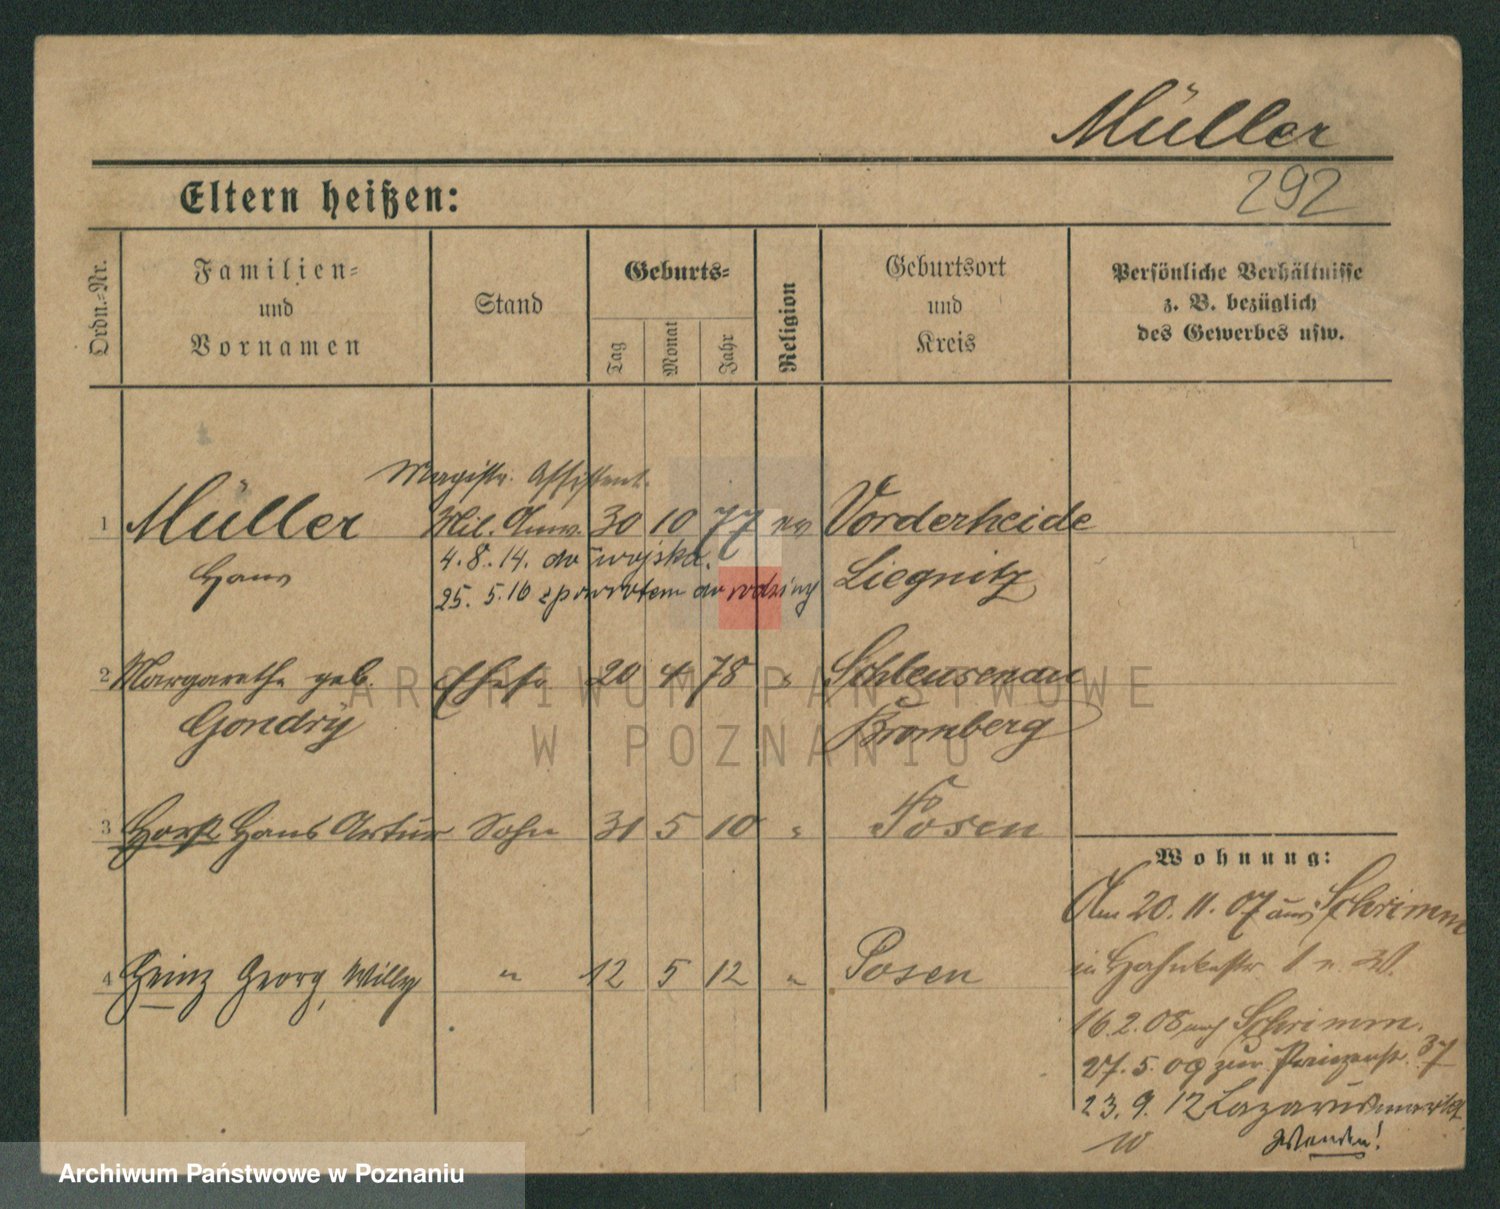 Müller
292
Eltern heißen:
Ordn.-Nr.
Familien-
und
Vornamen
Stand
Geburts-
Tag
Monat
Jahr
Religion
Geburtsort
und
Kreis
Persönliche Verhältnisse
z. B. bezüglich
des Gewerbes usw.
Magistr. Assistent.
1 Müller Mil. Anw. 30 10 77 ev Vorderheide
Hans
4. 8. 14. do wojska.
Liegnitz
25. 5. 16 zpowrotem do rodziny
2 Margarethe geb. Ehefr 20 4 78 " Schleusenau
Gondry
Bromberg
3 Horst Hans Artur Sohn 31 5 10 " Posen
Wohnung:
Am 20. 11. 07 aus Schrimm
4 Heinz Georg, Willy " 12 5 12 " Posen
in
16. 2. 08 nach Schrimm.
27. 5. 09 zur Prinzenstr. 37
23. 9. 12 Lazarusmarkt
10
wenden!
ARCHIWUM PAŃSTWOWE
W POZNANIU
Archiwum Państwowe w Poznaniu